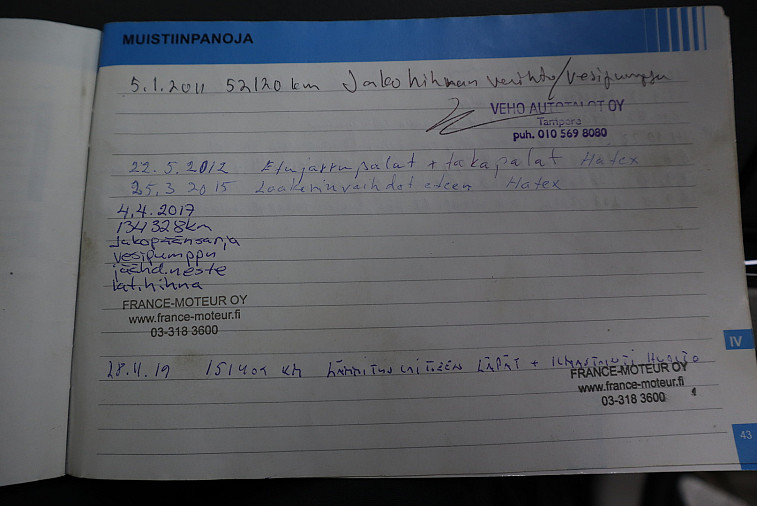 MUISTIINPANOJA
5.1.2011 52120 km Jakohihnan vaihto/vesipumppu
VEHO AUTOTALOT OY
Tampere
puh. 010 569 8080
22.5.2012 Etujarrupalat + takapalat Hatex
25.3 2015 Laakerinvaihdot eteen Hatex
4.4.2017
134328km
Jakopäänsarja
vesipumppu
jäähd.neste
lat.hihna
FRANCE-MOTEUR OY
www.france-moteur.fi
03-318 3600
28.11.19 151402 km LÄMMITYSLAITTEEN LÄPÄT + ILMASTOINTI HUOLTO
FRANCE-MOTEUR OY
www.france-moteur.fi
03-318 3600
IV
43